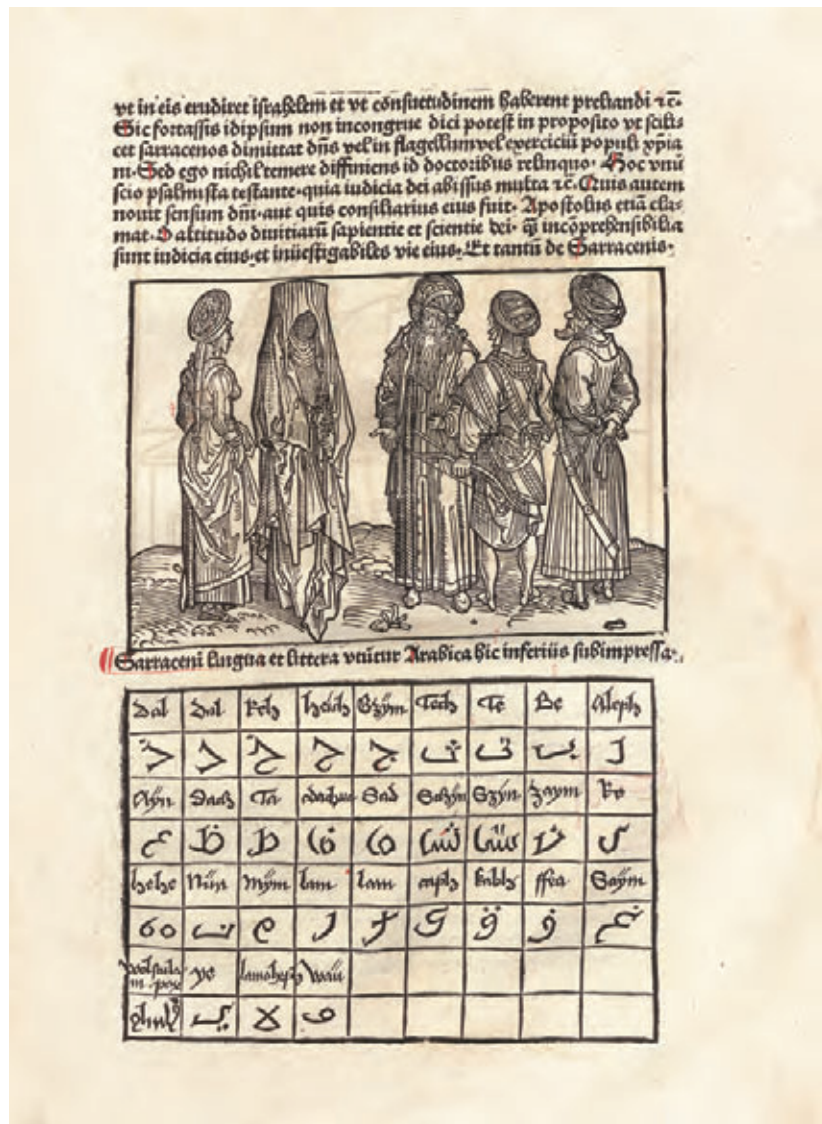 vt in eis erudiret israhelem et vt cõnsuetudinem haberent preliandi ⁊c̃·
Sic fortassis idipsum non incongrue dici potest in proposito vt scili⸗
cet sarracenos dimittat dñs vel in flagellum vel exerciciũ populi xp̃ia
ni· Sed ego nichil temere diffiniens id doctoribus relinquo· Hoc vnũ
scio psalmista testante· quia iudicia dei abissus multa ⁊c̃· Quis autem
nouit sensum dñi· aut quis consiliarius eius fuit· Apostolus etiã cla⸗
mat· O altitudo diuitiarũ sapientie et scientie dei· q̃ incõprehensibilia
sunt iudicia eius· et inuestigabiles vie eius· Et tantũ de Sarracenis·
Sarraceni lingua et littera vtũtur Arabica hic inferius subimpressa·
Dal Dal Keh heich Gzÿm Tech Te Be Aleph
ذ د خ ح ج ث ت ب ا
Aÿn Dach Ta Sad Schÿn Szÿn zaym Re
ع ظ ط ض ص ش س ز ر
hehe Nûn Mÿm lam lam caph kabh ffea Gaÿm
ه ن م ل ك ق ف غ
ye wau
ي لا و